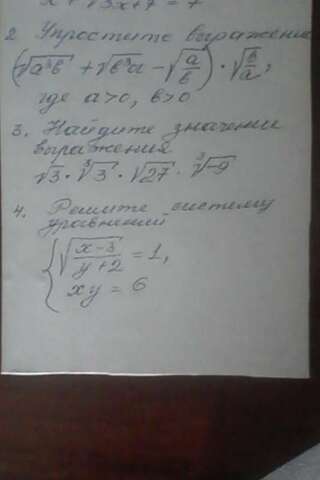 x + √3x+7 = 7
2 Упростите выражение
(√a³b + √b³a − √a/b) · √b/a;
где a>0, b>0
3. Найдите значении
выражения
√3 · ³√3 · √27 · ³√-9
4. Решите систему
уравнений
{ √x-3/y+2 = 1,
xy = 6